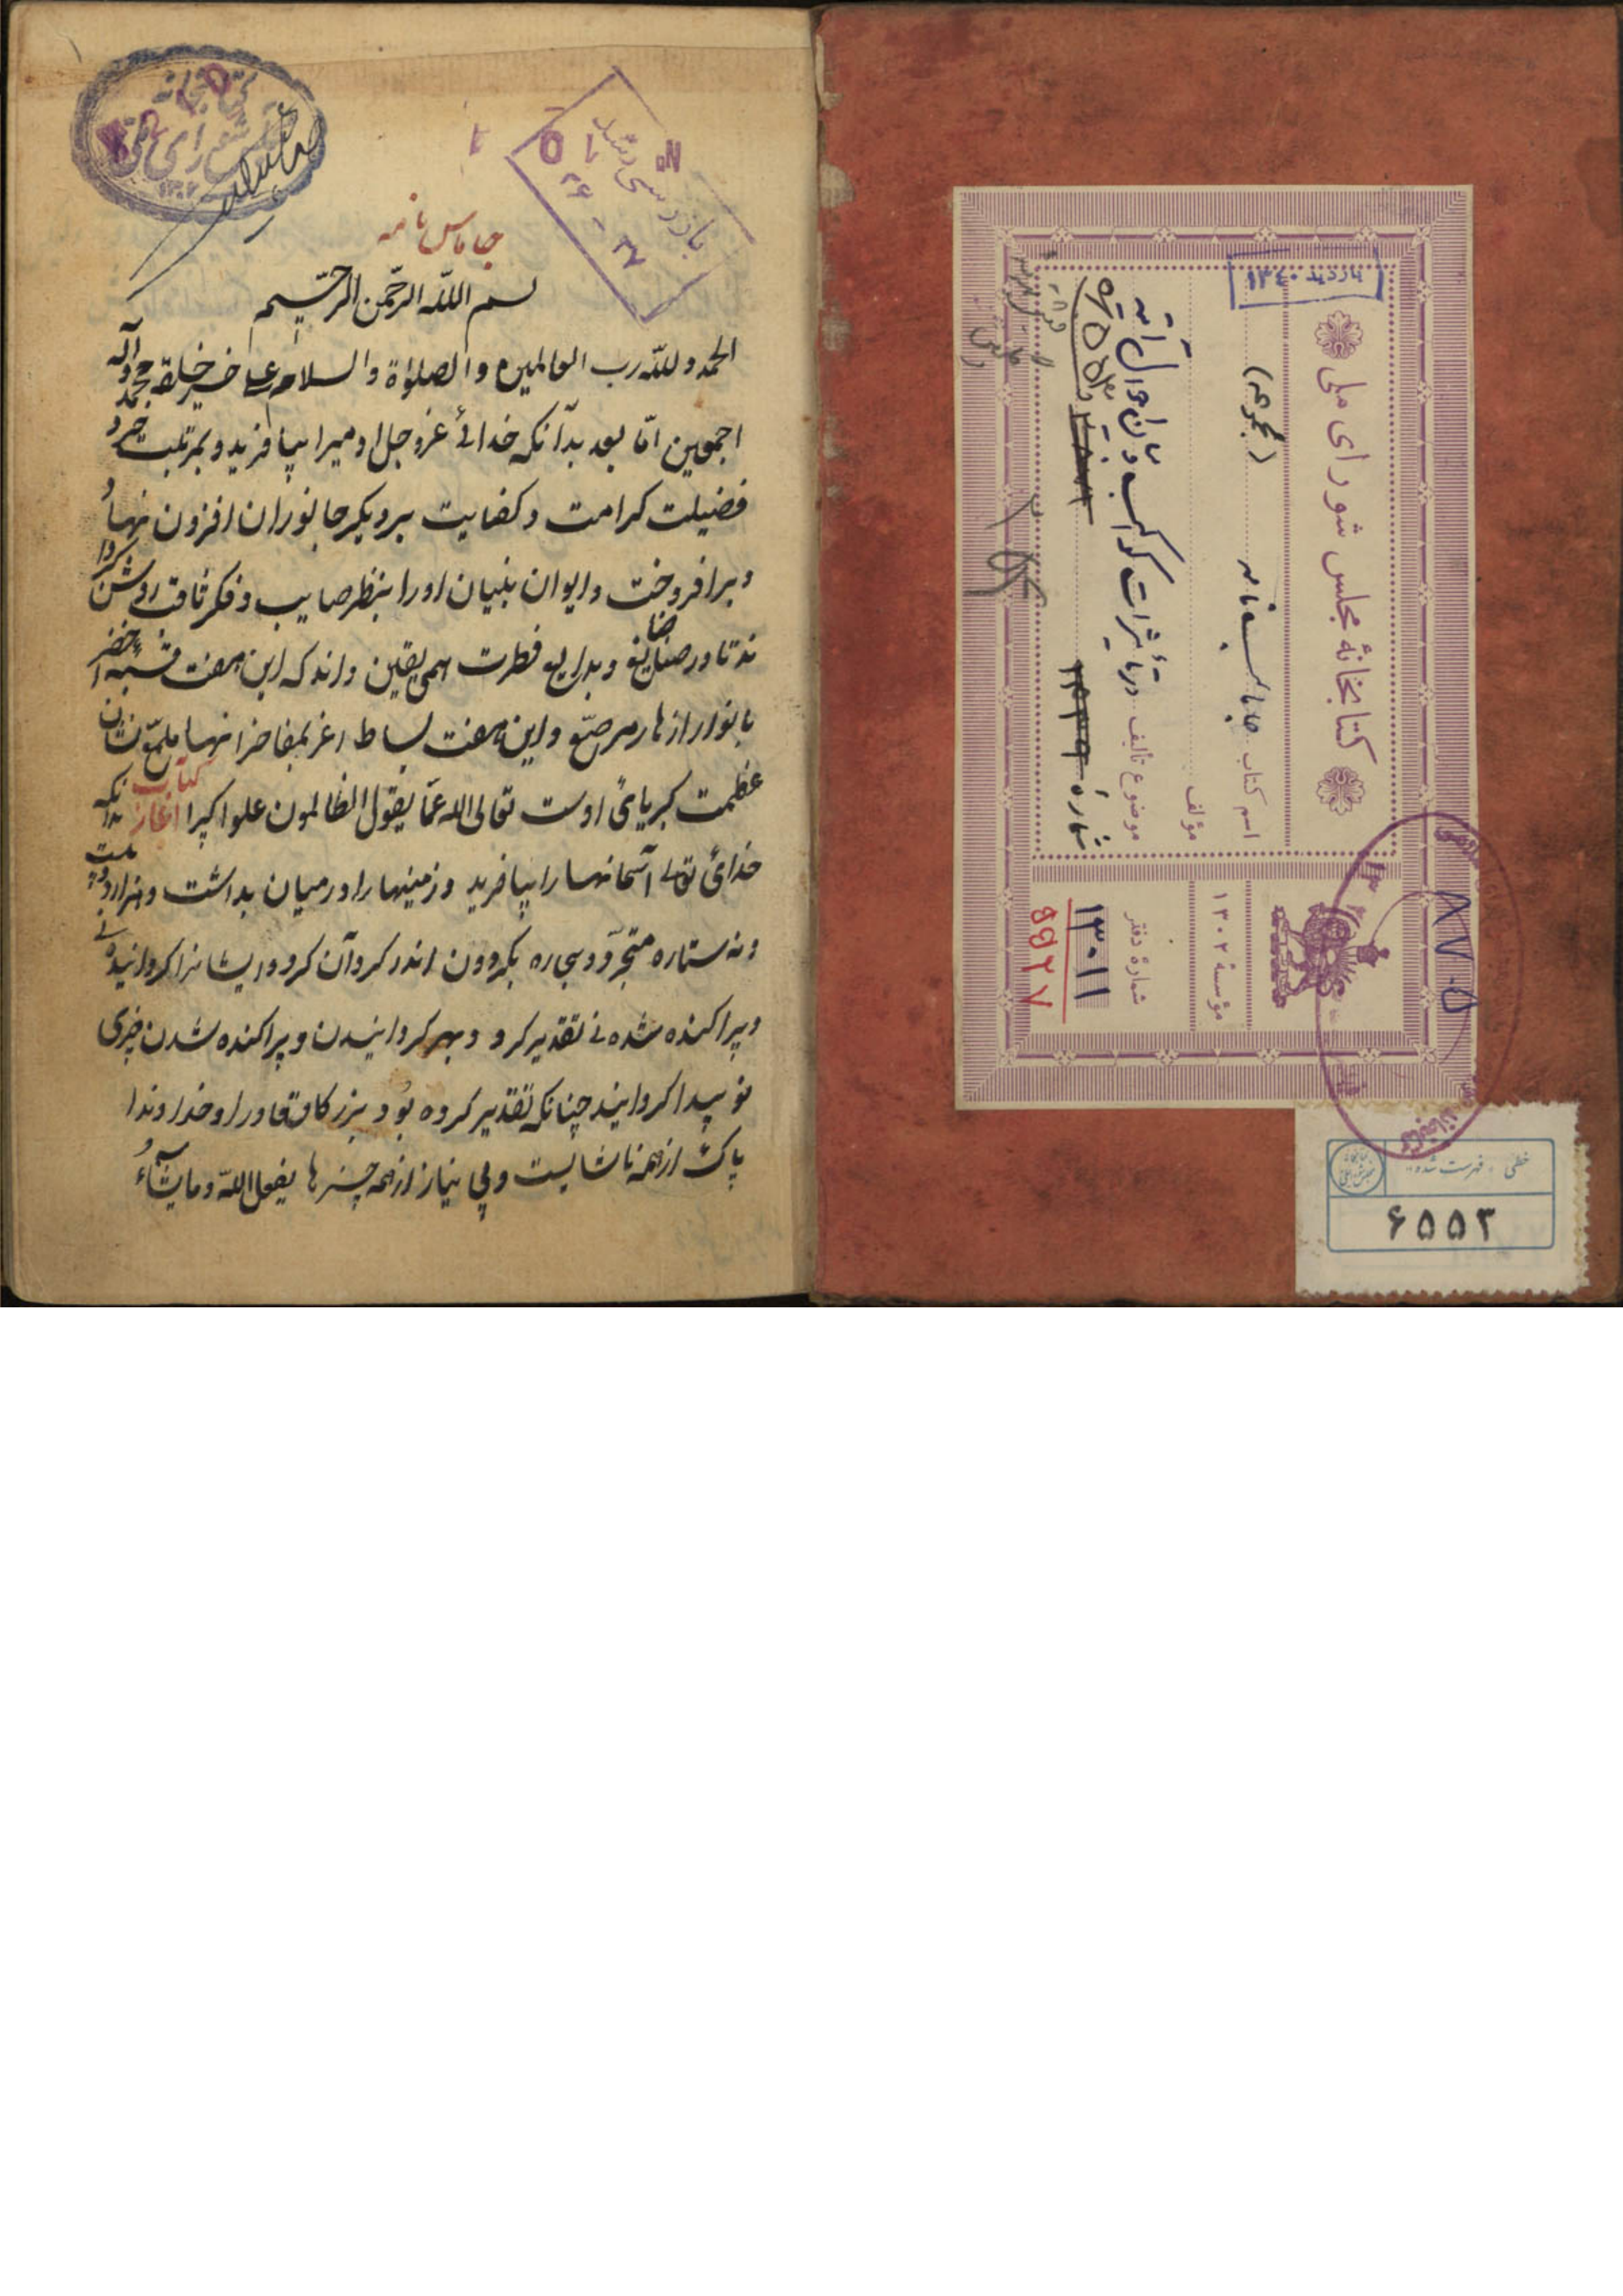 جاماس نامه
بسم الله الرحمن الرحیم
الحمد و لله رب العالمین و الصلوٰة و السلام علی خیر خلقه محمد و آله
اجمعین امّا بعد بدآنکه خدائے عزو جل اومیرا بیافرید و بمرتبت خرد
فضیلت کرامت و کفایت بر دیکر جانوران افزون نهاد
و برافروخت و ایوان بنیان اورا بنظر صایب و فکر ثاقب روشن کردا
ند تا در صنایع و بدایع فطرت همی یقین داند که این هفت قبه اخضر
بانوار ازهار مرصّع و این هفت بساط اغر بمفاخر انهار ملمّع نشان
عظمت کبریائ اوست تعالی الله عمّا یقول الظالمون علوا کبرا اغاز کتاب بدانکه
خدائ تعالے آسمانها را بیافرید و زمینها را در میان بداشت و هزار و بیست
و نه ستاره متحیّر و سیاره بکردون اندر کرد آن کرد و ایشانرا کردانیدنے
و پراکنده شدنے تقدیر کرد و بهر کردانیدن و پراکنده شدن چیزی
نو پیدا کردانید چنانکه تقدیر کرده بُود بزرکا و قادرا و خداوندا
پاک از همه ناشایست و بی نیاز از همه چیزها یفعل الله و مایشآءُ
بازرسی شد
۳۶ - ۳۷
کتابخانهٔ مجلس شورای ملی
بازدید ۱۳۴۰
اسم کتاب جاماسب نامه (نجوم)
مؤلف
موضوع تألیف در تأثیرات کواکب و بیان احوال آتیه
شمارهٔ
مؤسسهٔ ۱۳۰۲
شمارهٔ دفتر
۱۳۰۱۱
۵۵۲۷
۸۷۰۵
خطی - فهرست شده
۶۵۵۳